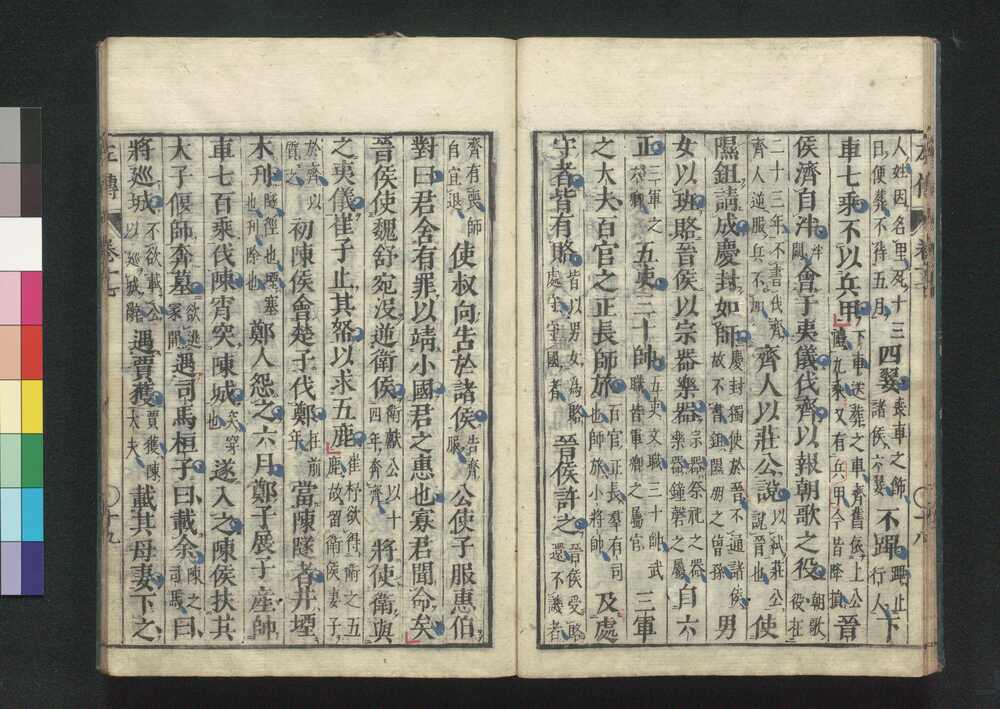 人姓因名里死十三日便葬不待五月四翣喪車之飾諸侯六翣不蹕蹕止行人下
車七乘不以兵甲下車送葬之車齊舊依上公禮九乘又有兵甲今皆降損晉
侯濟自泮泮闕會于夷儀伐齊以報朝歌之役朝歌役在
二十三年不書伐齊齊人逆服兵不加齊人以莊公說以弑莊公說晉也使
隰鉏請成慶封如師慶封獨使於晉不通諸侯故不書鉏隰朋之曾孫男
女以班賂晉侯以宗器樂器宗器祭祀之器樂器鐘磬之屬自六
正三軍之六卿五吏三十帥五吏文職三十帥武職皆軍之屬官三軍
之大夫百官之正長師旅百官正長羣有司也師旅小將帥及處
守者皆有賂皆以男女為賂處守守國者晉侯許之晉侯受賂還不譏者
齊有喪師自宜退使叔向告於諸侯告齊服公使子服惠伯
對曰君舍有罪以靖小國君之惠也寡君聞命矣
晉侯使魏舒宛沒逆衛侯衛獻公以十四年奔齊將使衛與
之夷儀崔子止其帑以求五鹿崔杼欲得衛之五鹿故留衛侯妻子
於齊以質之初陳侯會楚子伐鄭在前年當陳隧者井堙
木刋隧徑也堙塞也刋除也鄭人怨之六月鄭子展子產帥
車七百乘伐陳宵突陳城突穿也遂入之陳侯扶其
大子偃師奔墓欲逃冢間遇司馬桓子曰載余陳之司馬曰
將巡城不欲載公以巡城辭遇賈獲賈獲陳大夫載其母妻下之
左傳 卷十七 十九